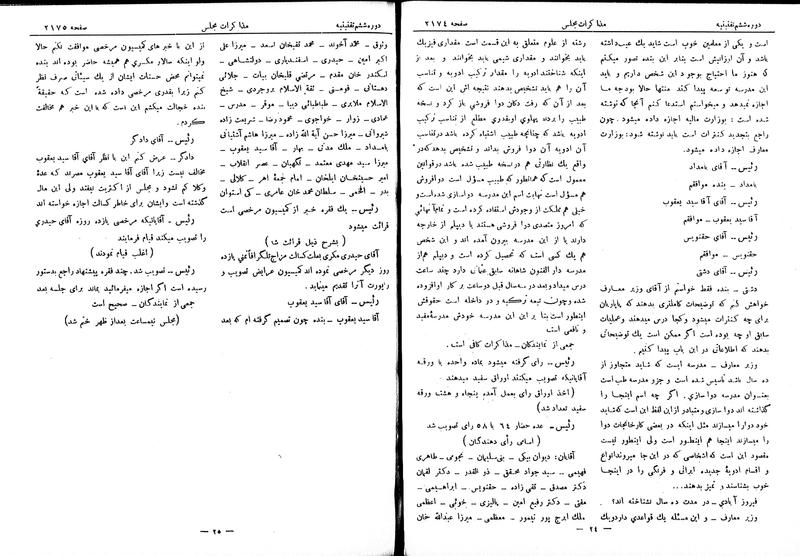 دوره ششم تقنینیه
مذاکرات مجلس
صفحه ۲۱۷۴
است و یکی از معلمین خوب است شاید یك عیب داشته
باشد و آن ارزانیش است بنابر این بنده تصور میکنم
که هنوز ما احتیاج بوجود این شخص داریم و باید
این مدرسه توسعه پیدا کند منتها حالا بودجه ما
اجازه نمیدهد و میخواستم استدعا کنم آنجا که نوشته
شده است : بوزارت مالیه اجازه داده میشود. چون
راجع بتجدید کنترات است باید نوشته شود: بوزارت
معارف اجازه داده میشود.
رئیس ــ آقای بامداد
بامداد ــ بنده موافقم
رئیس ــ آقای آقا سید یعقوب
آقا سید یعقوب ــ موافقم
رئیس ــ آقای حقنویس
حقنویس ــ موافقم
رئیس ــ آقای دشتی
دشتی ــ بنده فقط خواستم از آقای وزیر معارف
خواهش کنم که توضیحات کاملتری بدهند که پایاریان
برای چه کنترات میشود و کجا درس میدهند و عملیات
سابق او چه بوده است اگر ممکن است یك توضیحاتی
بدهند که اطلاعاتی در این باب پیدا کنیم .
وزیر معارف ــ مدرسه ایست که شاید متجاوز از
ده سال باشد تأسیس شده است و جزو مدرسه طب است
بعنوان مدرسه دوا سازی . اگر چه اسم اینجا را
گذاشته اند دوا سازی و متبادر از این لفظ این است که شاید
خود دوا را میسازند مثل اینکه در بعضی کارخانجات دوا
را میسازند اینجا هم اینطور است ولی اینطور نیست
مقصود این است که اشخاصی که در این جا میروند انواع
و اقسام ادویۀ جدیده ایرانی و فرنگی را در اینجا
خوب بشناسند و تمیز بدهند...
فیروز آبادی ــ در مدت ده سال نشناخته اند؟
وزیر معارف ــ و این مسئله یك قواعدی دارد ویك
رشته از علوم متعلق به این قسمت است مقداری فیزیك
باید بخوانند و مقداری شیمی باید بخوانند و بعد از
اینکه شناختند ادویه را مقدار ترکیب ادویه و تناسب
آن را هم باید تشخیص بدهند نتیجه اش این است که
بعد از آن که رفت دکان دوا فروشی باز کرد و نسخه
طبیب را بردند پهلوی او بقدری مطلع از تناسب ترکیب
ادویه باشد که چنانچه طبیب اشتباه کرده باشد در تناسب
آن ادویه آن دوا فروش بداند و تشخیص بدهد که در
واقع یك نظارتی هم در نسخه طبیب شده باشد در قوانین
معمول است که همانطور که طبیب مسؤل است دوا فروش
هم مسؤل است نهایت اسم این مدرسه دوا سازی شده است و
خیلی هم مملکت از وجودش استفاده کرده است و تمام آنهائی
که امروز متصدی دوا فروشی هستند یا دیپلم از خارجه
دارند یا از این مدرسه بیرون آمده اند و این شخص
هم یك کسی است که تحصیل کرده است و دیپلم هم از
مدرسه دار الفنون شاهانه سابق عثمانی دارد چند ساعت
درس میداد و بعد در سابق قبل دو ساعت بر کار او افزوده
شده و چون تبعه ترکیه و در داخله است حقوقش
اینطور است بنا بر این این مدرسه خودش مدرسه مفید
و نافعی است
جمعی از نمایندگان ــ مذاکرات کافی است .
رئیس ــ رأی گرفته میشود بماده واحده با ورقه
آقایانیکه تصویب میکنند اوراق سفید میدهند
(اخذ اوراق رأی بعمل آمده پنجاه و هشت ورقه
سفید تعداد شد)
رئیس ــ عده حضار ۶۴ با ۵۸ رأی تصویب شد
(اسامی رأی دهندگان)
آقایان: دیوان بیگی ــ بنی سلیمان ــ نجومی ــ طاهری
فهیمی ــ سید جواد محقق ــ ذو القدر ــ دکتر لقمان
دکتر مصدق ــ تقی زاده ــ حقنویس ــ ابراهیمی ــ
مفتی ــ دکتر رفیع امین ــ پالیزی ــ خوئی ــ اعظمی
ملك ایرج پور تیمور ــ معظمی ــ میرزا عبدالله خان
ــ ۲۴ ــ
دوره ششم تقنینیه
مذاکرات مجلس
صفحه ۲۱۷۵
وثوق ــ محمد آخوند ــ محمد تقیخان اسعد ــ میرزا علی
اکبر امین ــ حیدری ــ اسفندیاری ــ دولتشاهی ــ
اسکندر خان مقدم ــ مرتضی قلیخان بیات ــ جلائی
دهستانی ــ قومسی ــ ثقة الاسلام بروجردی ــ شیخ
الاسلام ملایری ــ طباطبائی دیبا ــ موقر ــ مدرس ــ
عمادی ــ زوار ــ خواجوی ــ محمود رضا ــ شریعت زاده
شیروانی ــ میرزا حسن آیة الله زاده ــ میرزا هاشم آشتیانی
بامداد ــ ملك مدنی ــ بهار ــ آقا سید یعقوب ــ
میرزا سید مهدی معتمد ــ نگهبان ــ عصر انقلاب ــ
امیر حسینخان ایلخان ــ امام جمعۀ اهر ــ کلالی ــ
بدر ــ الحمی ــ سلطان محمد خان عامری ــ کی استوان
رئیس ــ یك فقره خبر از کمیسیون مرخصی است
قرائت میشود
( بشرح ذیل قرائت شد )
آقای حیدری مکری بعلت کسالت مزاج تلگرافاً تمنی پانزده
روز دیگر مرخصی نموده اند کمیسیون عرایض تصویب و
راپورت آنرا تقدیم مینماید .
رئیس ــ آقای آقا سید یعقوب
آقا سید یعقوب ــ بنده چون تصمیم گرفته ام که بعد
از این با خبر های کمیسیون مرخصی موافقت نکنم حالا
ولو اینکه سالار مکری هم همیشه حاضر بوده اند بنده
نمیتوانم محض حسنات ایشان از یك سیئاتی صرف نظر
کنم زیرا بقدری مرخصی داده شده است که حقیقةً
بنده خجالت میکشم این است که با این خبر هم مخالفت
کردم .
رئیس ــ آقای دادگر
دادگر ــ عرض کنم این با نظر آقای آقا سید یعقوب
مخالف نیست زیرا آقای آقا سید یعقوب مصرند که عدۀ
وکلا کم نشود و مجلس از اکثریت نیفتد ولی این سال
گذشته است و ایشان برای خاطر کسالت اجازه خواسته اند
رئیس ــ آقایانیکه مرخصی پانزده روزه آقای حیدری
را تصویب میکند قیام فرمایند
( اغلب قیام نمودند )
رئیس ــ تصویب شد. چند فقره پیشنهاد راجع بدستور
رسیده است اگر اجازه میفرمائید بماند برای جلسه بعد
جمعی از نمایندگان ــ صحیح است
(مجلس نیمساعت بعد از ظهر ختم شد)
ــ ۲۵ ــ